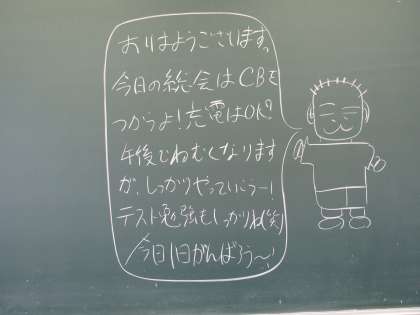 おはようございます。
今日の総会はCBを
つかうよ！充電はOK？
午後でねむくなります
が、しっかりやっていこうー！
テスト勉強もしっかりね(笑)
今日1日がんばろう〜！